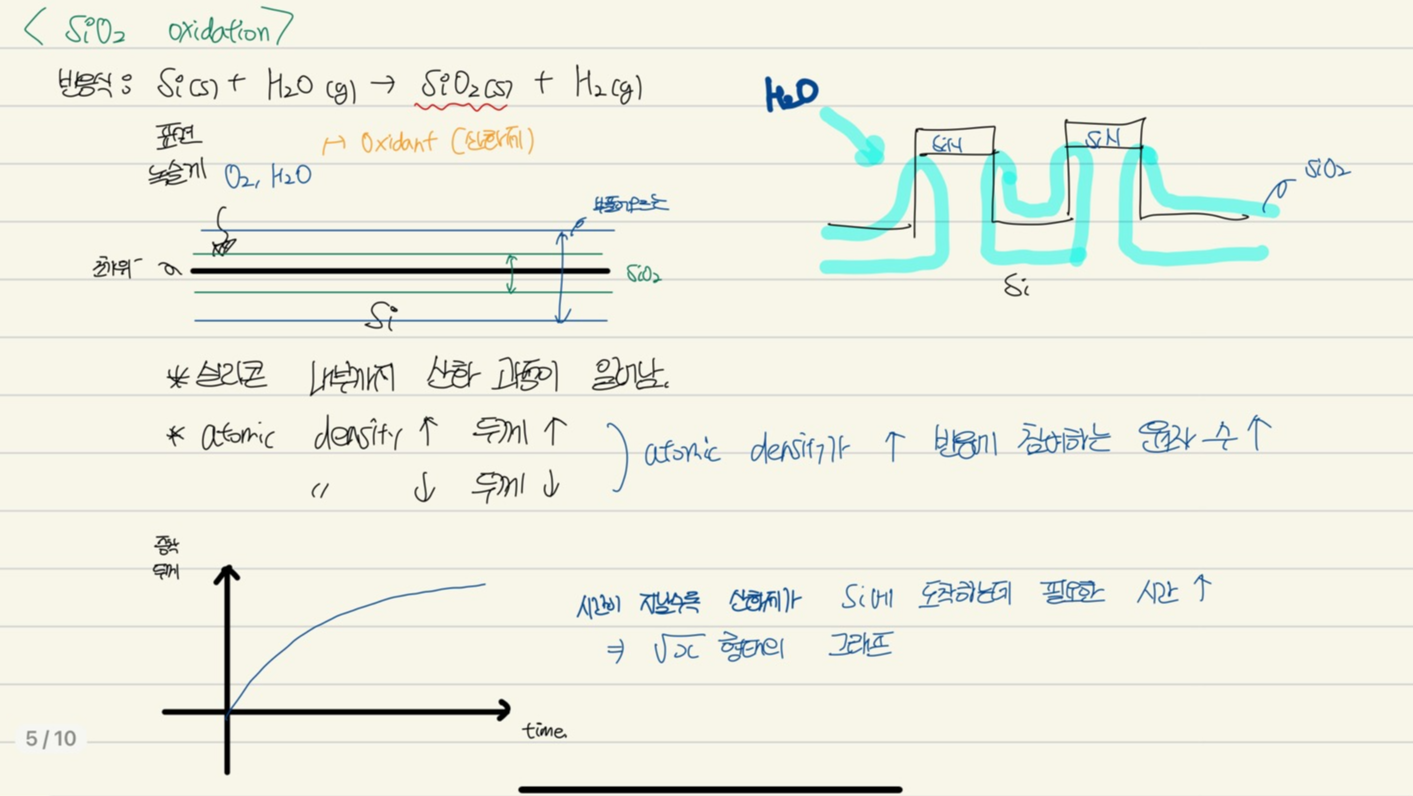 < SiO2 oxidation >
반응식 : Si(s) + H2O (g) → SiO2(s) + H2(g)
표면
녹슬게 O2, H2O
↦ Oxidant (산화제)
H2O
SiN
SiN
SiO2
Si
SiO2
Si
* 실리콘 내부까지 산화 과정이 일어남.
* atomic density ↑ 두께 ↑
〃 ↓ 두께 ↓
) atomic density가 ↑ 반응에 참여하는 원자 수 ↑
증착
두께
time.
시간이 지날수록 산화제가 Si에 도착하는데 필요한 시간 ↑
⇒ √x 형태의 그래프
5 / 10